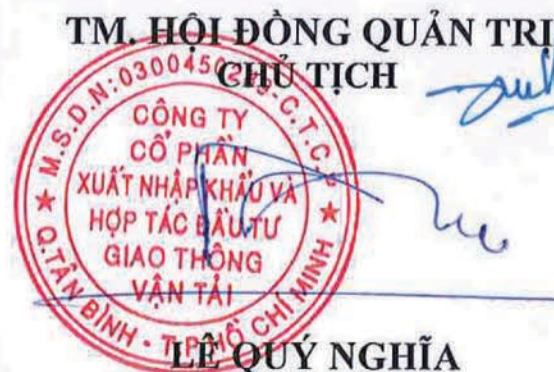 TM. HỘI ĐỒNG QUẢN TRỊ
CHỦ TỊCH
★ M.S.D.N: -C.T.C.P ★
CÔNG TY
CỔ PHẦN
XUẤT NHẬP KHẨU VÀ
HỢP TÁC ĐẦU TƯ
GIAO THÔNG
VẬN TẢI
Q.TÂN BÌNH - T.P HỒ CHÍ MINH
LÊ QUÝ NGHĨA